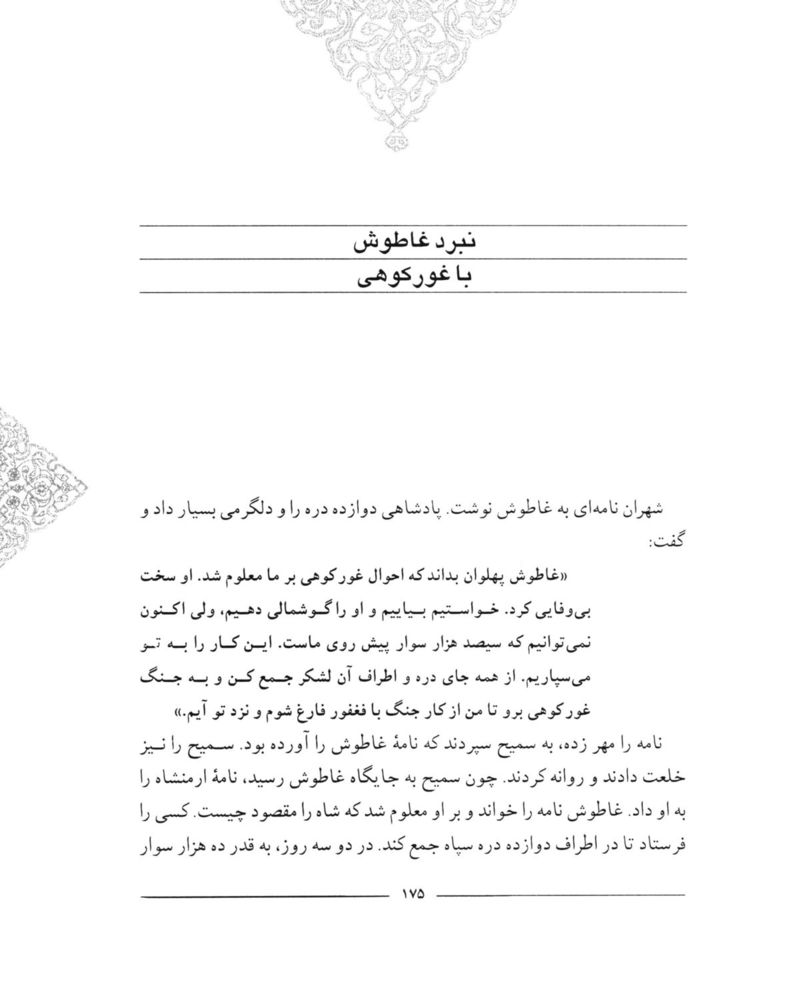 نبرد غاطوش
با غورکوهی
شهران نامه‌ای به غاطوش نوشت. پادشاهی دوازده دره را و دلگرمی بسیار داد و
گفت:
«غاطوش پهلوان بداند که احوال غورکوهی بر ما معلوم شد. او سخت
بی‌وفایی کرد. خواستیم بیاییم و او را گوشمالی دهیم، ولی اکنون
نمی‌توانیم که سیصد هزار سوار پیش روی ماست. این کار را به تو
می‌سپاریم. از همه جای دره و اطراف آن لشکر جمع کن و به جنگ
غورکوهی برو تا من از کار جنگ با فغفور فارغ شوم و نزد تو آیم.»
نامه را مهر زده، به سمیح سپردند که نامهٔ غاطوش را آورده بود. سمیح را نیز
خلعت دادند و روانه کردند. چون سمیح به جایگاه غاطوش رسید، نامهٔ ارمنشاه را
به او داد. غاطوش نامه را خواند و بر او معلوم شد که شاه را مقصود چیست. کسی را
فرستاد تا در اطراف دوازده دره سپاه جمع کند. در دو سه روز، به قدر ده هزار سوار
۱۷۵